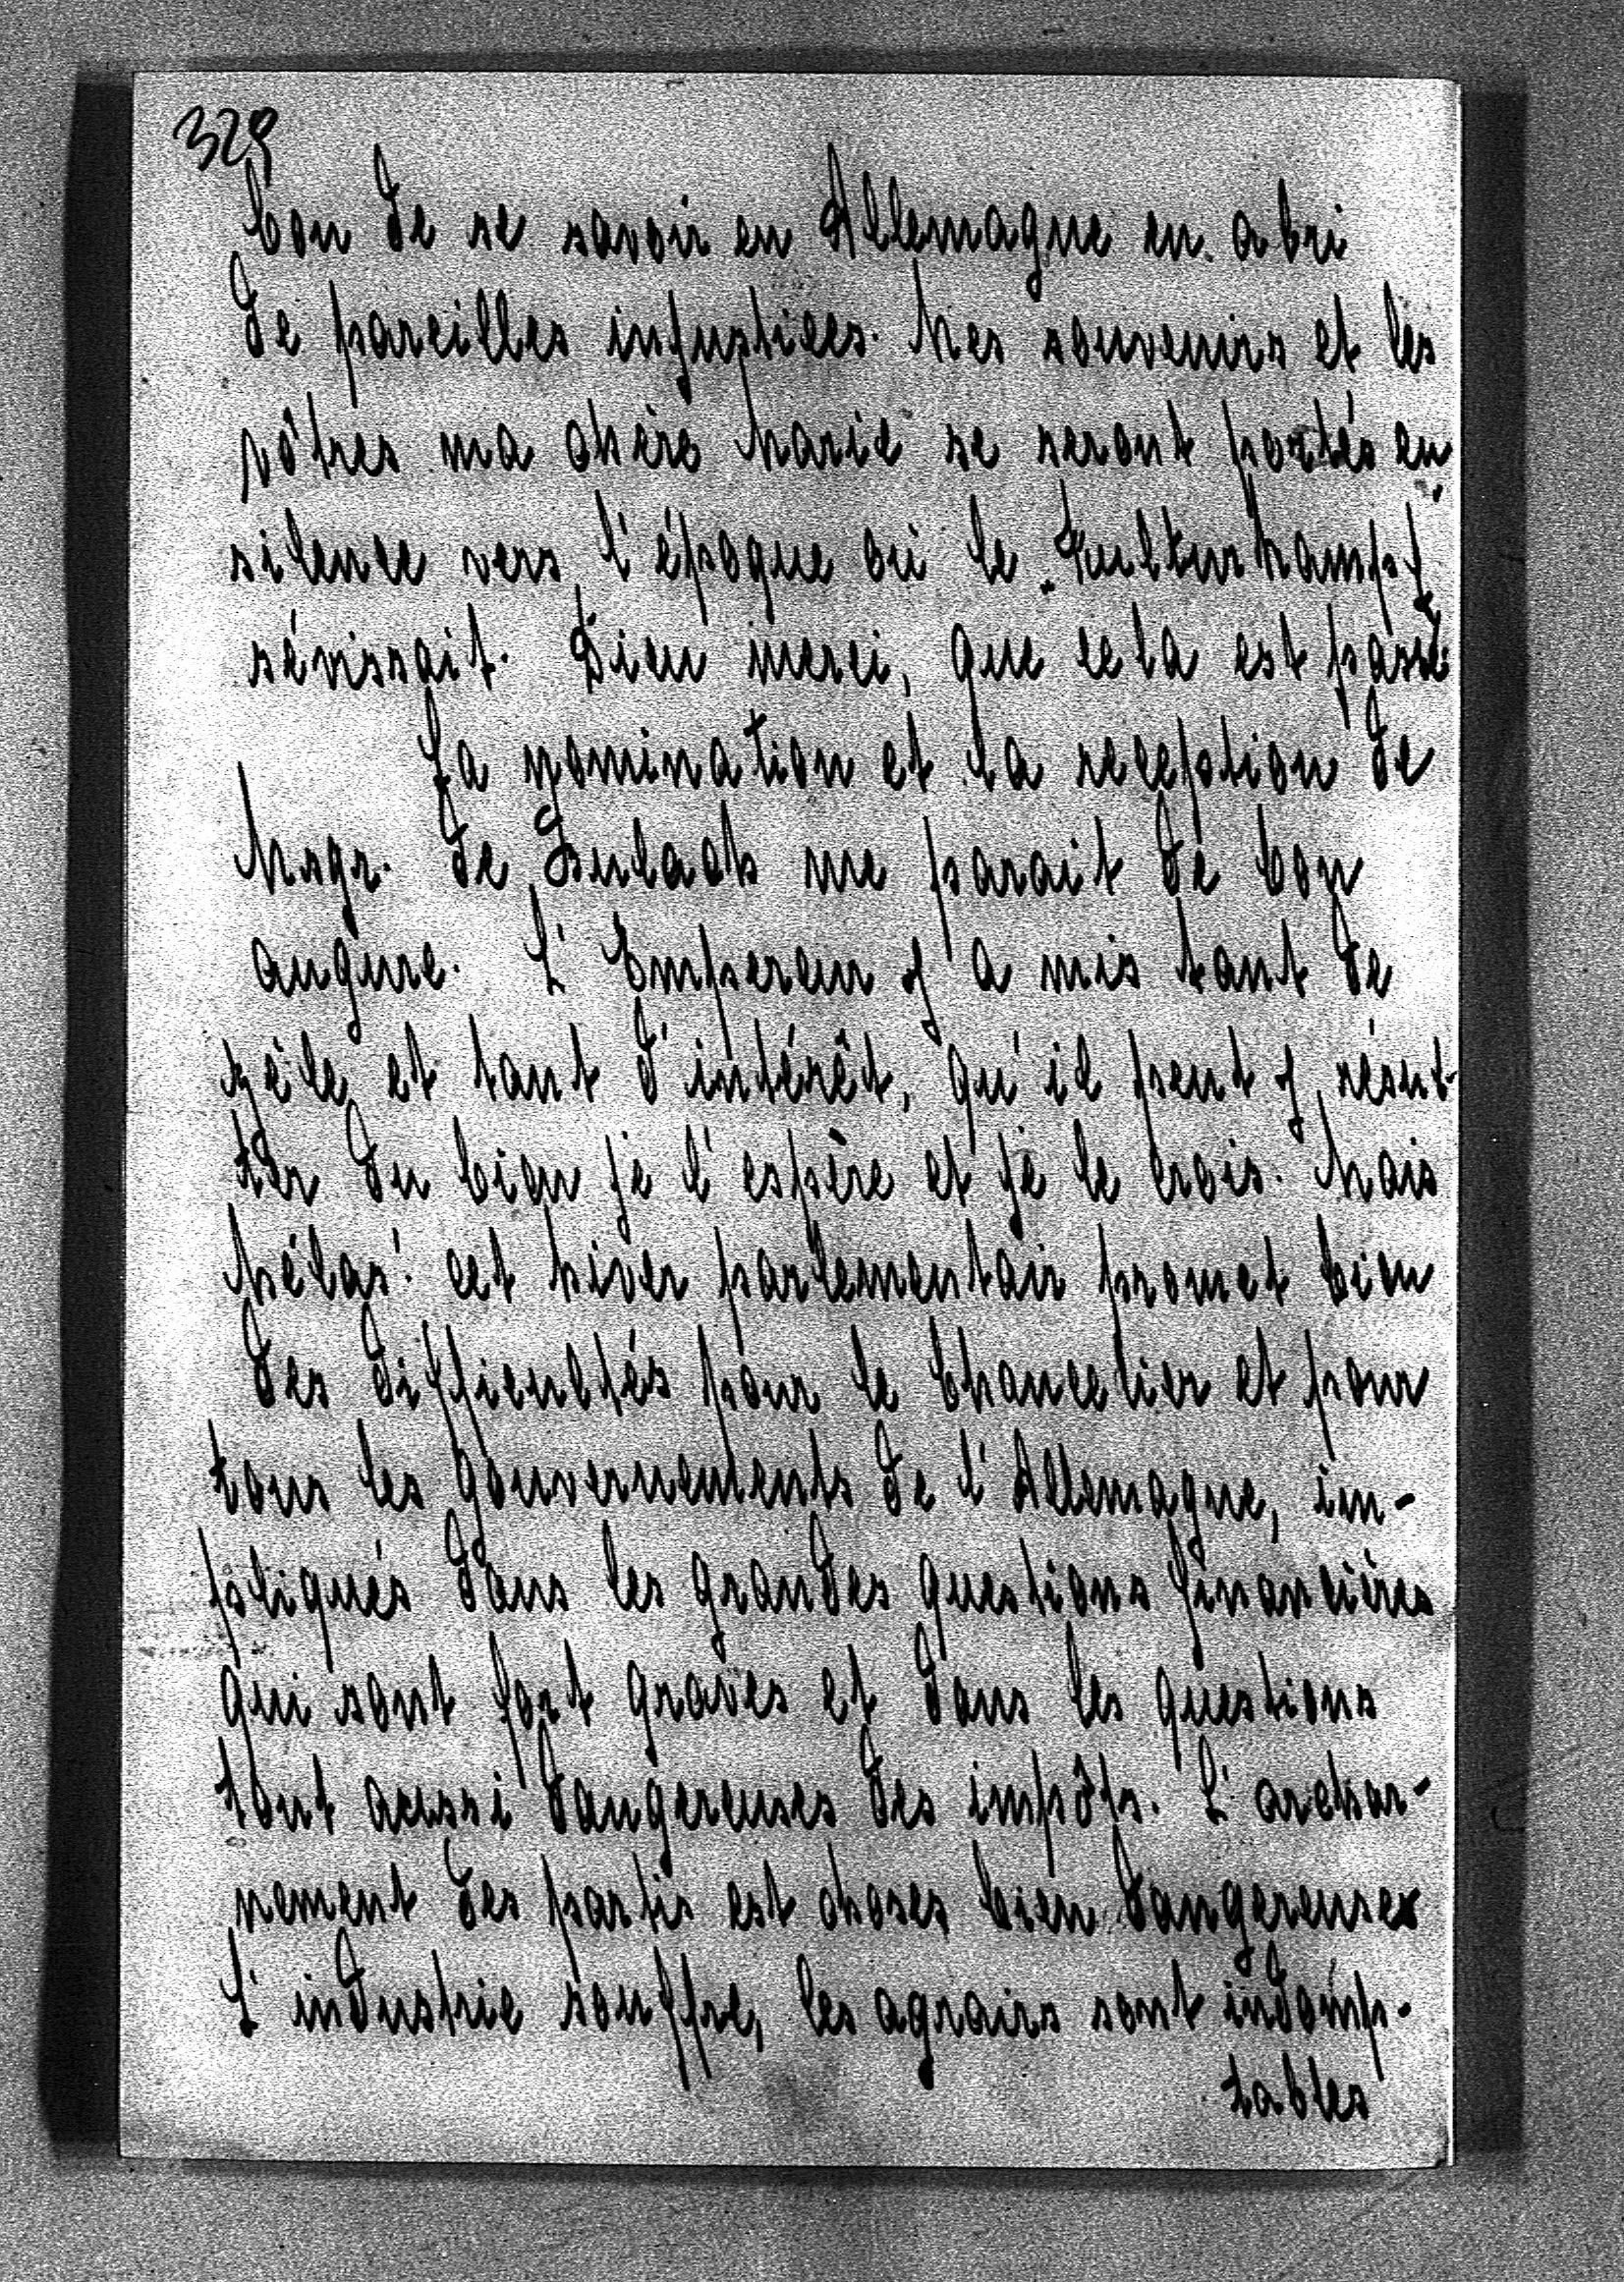 329
bon de se savoir en Allemagne en abri
de pareilles injustices. Mes souvenirs et les
vôtres ma chère Marie se seront portés en
silence vers l'époque où le „Kulturkampf"
sévissait. Dieu merci, que cela est passé
La nomination et la reception de
Msgr. de Fürlach me parait de bon
augure. L'Empereur y a mis tant de
zèle et tant d'intérêt, qu'il peut y résul-
ter du bien je l'espère et je le crois. Mais
hélas! cet hiver parlementair promet bien
des difficultés pour le Chancelier et pour
tous les gouvernements de l'Allemagne, im-
pliqués dans les grandes questions financières
qui sont fort graves et dans les questions
tout aussi dangereuses des impôts. L'achar-
nement des partis est choses bien dangereuses
L'industrie souffre, les agrairs sont indomp-
tables